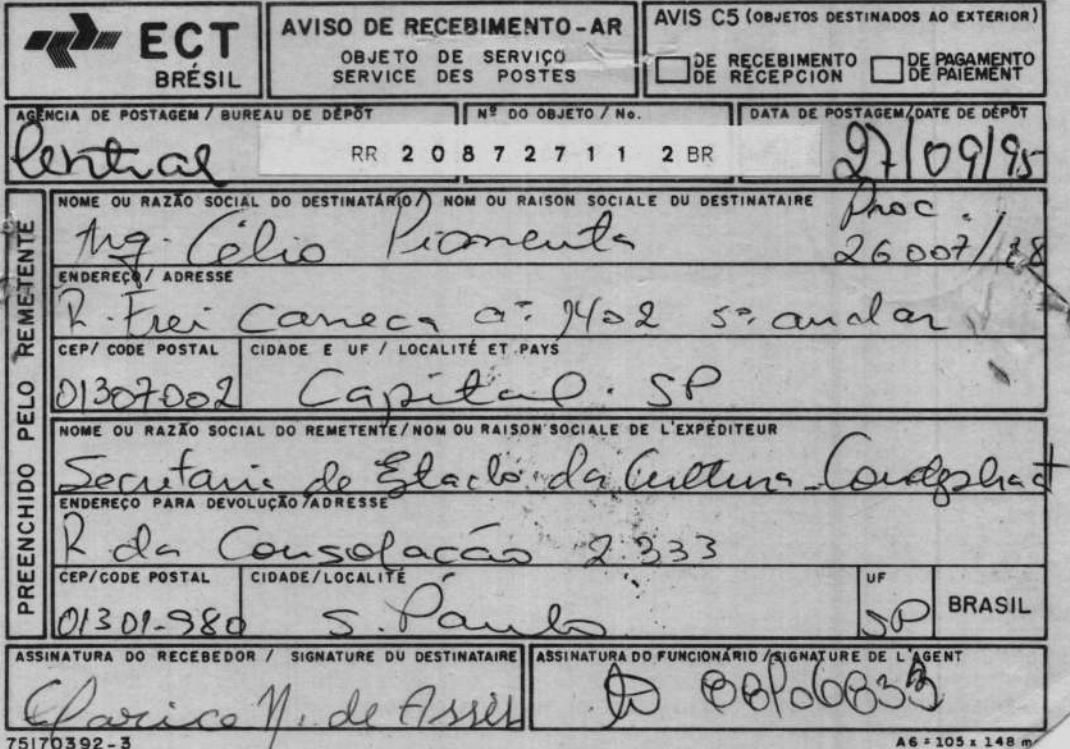 ECT
BRÉSIL
AVISO DE RECEBIMENTO-AR
OBJETO DE SERVIÇO
SERVICE DES POSTES
AVIS C5 (OBJETOS DESTINADOS AO EXTERIOR)
DE RECEBIMENTO
DE RÉCEPCION
DE PAGAMENTO
DE PAIEMENT
AGÊNCIA DE POSTAGEM / BUREAU DE DÉPÔT
Central
Nº DO OBJETO / No.
RR 20872711 2 BR
DATA DE POSTAGEM/DATE DE DÉPÔT
27/09/95
PREENCHIDO PELO REMETENTE
NOME OU RAZÃO SOCIAL DO DESTINATÁRIO / NOM OU RAISON SOCIALE DU DESTINATAIRE
Proc.
Célio Pimenta
26007/
ENDEREÇO / ADRESSE
R. Frei Caneca nº 1402 5º andar
CEP/ CODE POSTAL
01307002
CIDADE E UF / LOCALITÉ ET PAYS
Capital. SP
NOME OU RAZÃO SOCIAL DO REMETENTE/NOM OU RAISON SOCIALE DE L'EXPÉDITEUR
Secretaria de Estado da Cultura - Condephaat
ENDEREÇO PARA DEVOLUÇÃO /ADRESSE
R da Consolação 2.333
CEP/CODE POSTAL
01301-980
CIDADE/LOCALITÉ
S. Paulo
UF
SP
BRASIL
ASSINATURA DO RECEBEDOR / SIGNATURE DU DESTINATAIRE
Clarice N. de Assis
ASSINATURA DO FUNCIONÁRIO /SIGNATURE DE L'AGENT
75170392-3
A6 = 105 x 148 m